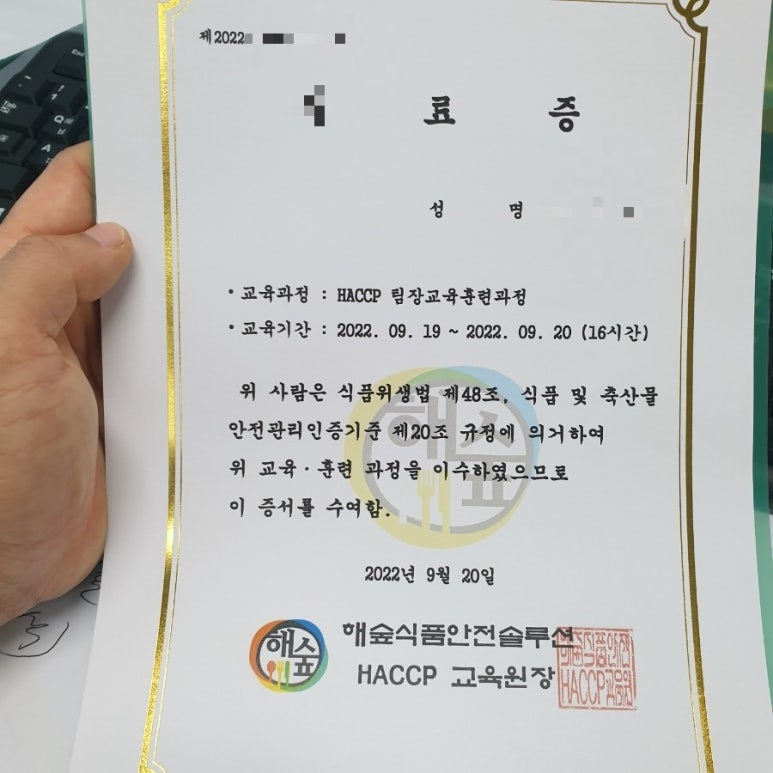 제2022
료 증
성 명
· 교육과정 : HACCP 팀장교육훈련과정
· 교육기간 : 2022. 09. 19 ~ 2022. 09. 20 (16시간)
위 사람은 식품위생법 제48조, 식품 및 축산물
안전관리인증기준 제20조 규정에 의거하여
위 교육·훈련 과정을 이수하였으므로
이 증서를 수여함.
해숲
2022년 9월 20일
해숲
해숲식품안전솔루션
HACCP 교육원장